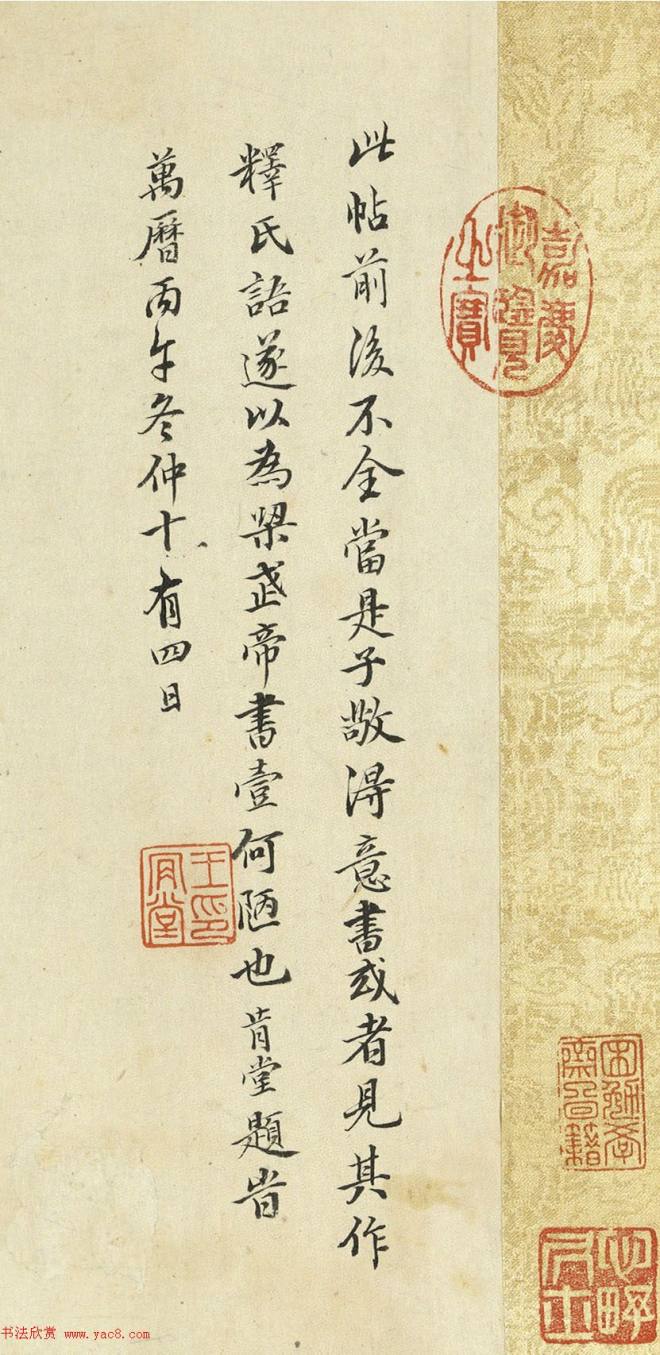 嘉慶御覽之寶
此帖前後不全當是子敬得意書或者見其作
釋氏語遂以為梁武帝書壹何陋也肯堂題旹
萬曆丙午冬仲十有四日
王印肯堂
心畬居士
书法欣赏 www.yac8.com